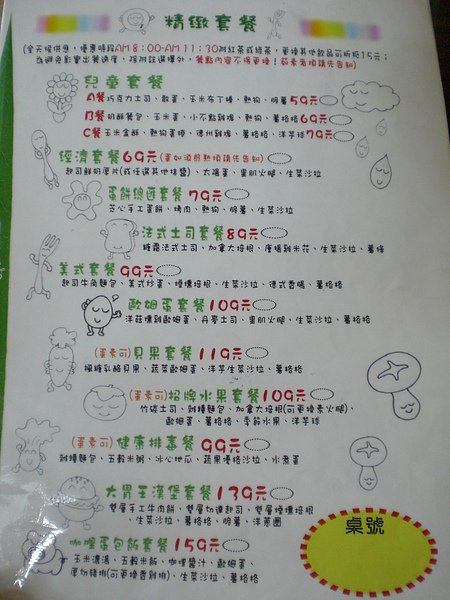 精緻套餐
(全天候供應，優惠時段AM8：00-AM11：30附紅茶或綠茶，更換其他飲品可折抵15元；
為避免影響出餐速度，除附註選擇外，餐點內容不得更換！茹素者煩請先告知)
兒童套餐
A餐巧克力土司、鮮蛋、玉米布丁燒、熱狗、脆薯59元
B餐奶酥餐包、玉米蛋、小不點雞塊、熱狗、薯格格69元
C餐玉米盒酥、熱狗蛋捲、德州雞塊、薯格格、洋芋球79元
經濟套餐69元(蛋如須煎熟煩請先告知)
起司鮮奶厚片(或任選其他抹醬)、太陽蛋、里肌火腿、生菜沙拉
蛋餅總匯套餐79元
芝心手工蛋餅、烤肉、熱狗、脆薯、生菜沙拉
法式土司套餐89元
糖霜法式土司、加拿大培根、唐揚雞米花、生菜沙拉、薯條
美式套餐99元
起司牛角麵包、美式炒蛋、煙燻培根、生菜沙拉、德式香腸、薯格格
歐姆蛋套餐109元
洋菇燻雞歐姆蛋、丹麥土司、里肌火腿、生菜沙拉、薯格格
(蛋素可)貝果套餐119元
楓糖乳酪貝果、蔬菜歐姆蛋、洋芋生菜沙拉、薯格格
(蛋素可)招牌水果套餐109元
竹碳土司、雜糧麵包、加拿大培根(可更換素火腿)、
歐姆蛋、薯格格、季節水果、洋芋球
(蛋素可)健康排毒餐99元
雜糧麵包、五穀米粥、冰心地瓜、蔬果優格沙拉、水煮蛋
大胃王漢堡套餐139元
雙層手工牛肉餅、雙層切達起司、雙層煙燻培根
、生菜沙拉、薯格格、脆薯、洋蔥圈
咖哩蛋包飯套餐159元
玉米濃湯、五穀米飯、咖哩醬汁、歐姆蛋、
厚切豬排(可更換香雞排)、生菜沙拉、薯格格
桌號